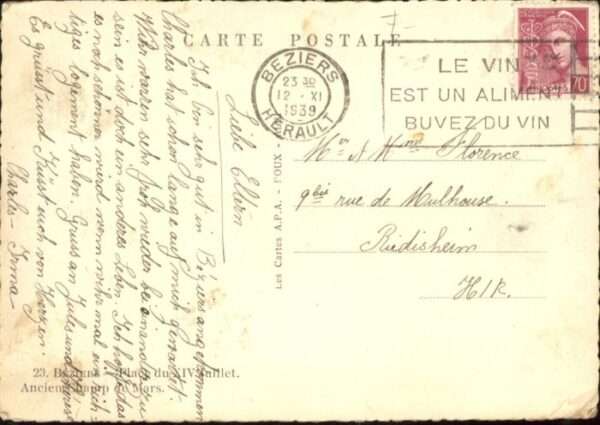 CARTE POSTALE
BEZIERS
23 30
12 - XI
1939
HERAULT
LE VIN
EST UN ALIMENT
BUVEZ DU VIN
70
Mr et Mme Florence
9bis rue de Mulhouse.
Riedisheim
H/R.
Les Cartes A.P.A. - POUX -
Liebe Eltern
Ich bin sehr gut in Béziers angekommen
Charles hat schon lange auf mich gewartet
Wir waren sehr froh wieder beianander zu
sein es ist doch ein anderes Leben. Ich hoffe das
es noch schöner wird wenn wir mal ein rich-
tiges logement haben. Gruss an Jules und
Es grüsst und Küsst euch von Herzen
Charles - Irma
23. BÉZIERS - Place du XIV Juillet.
Ancien Champ de Mars.